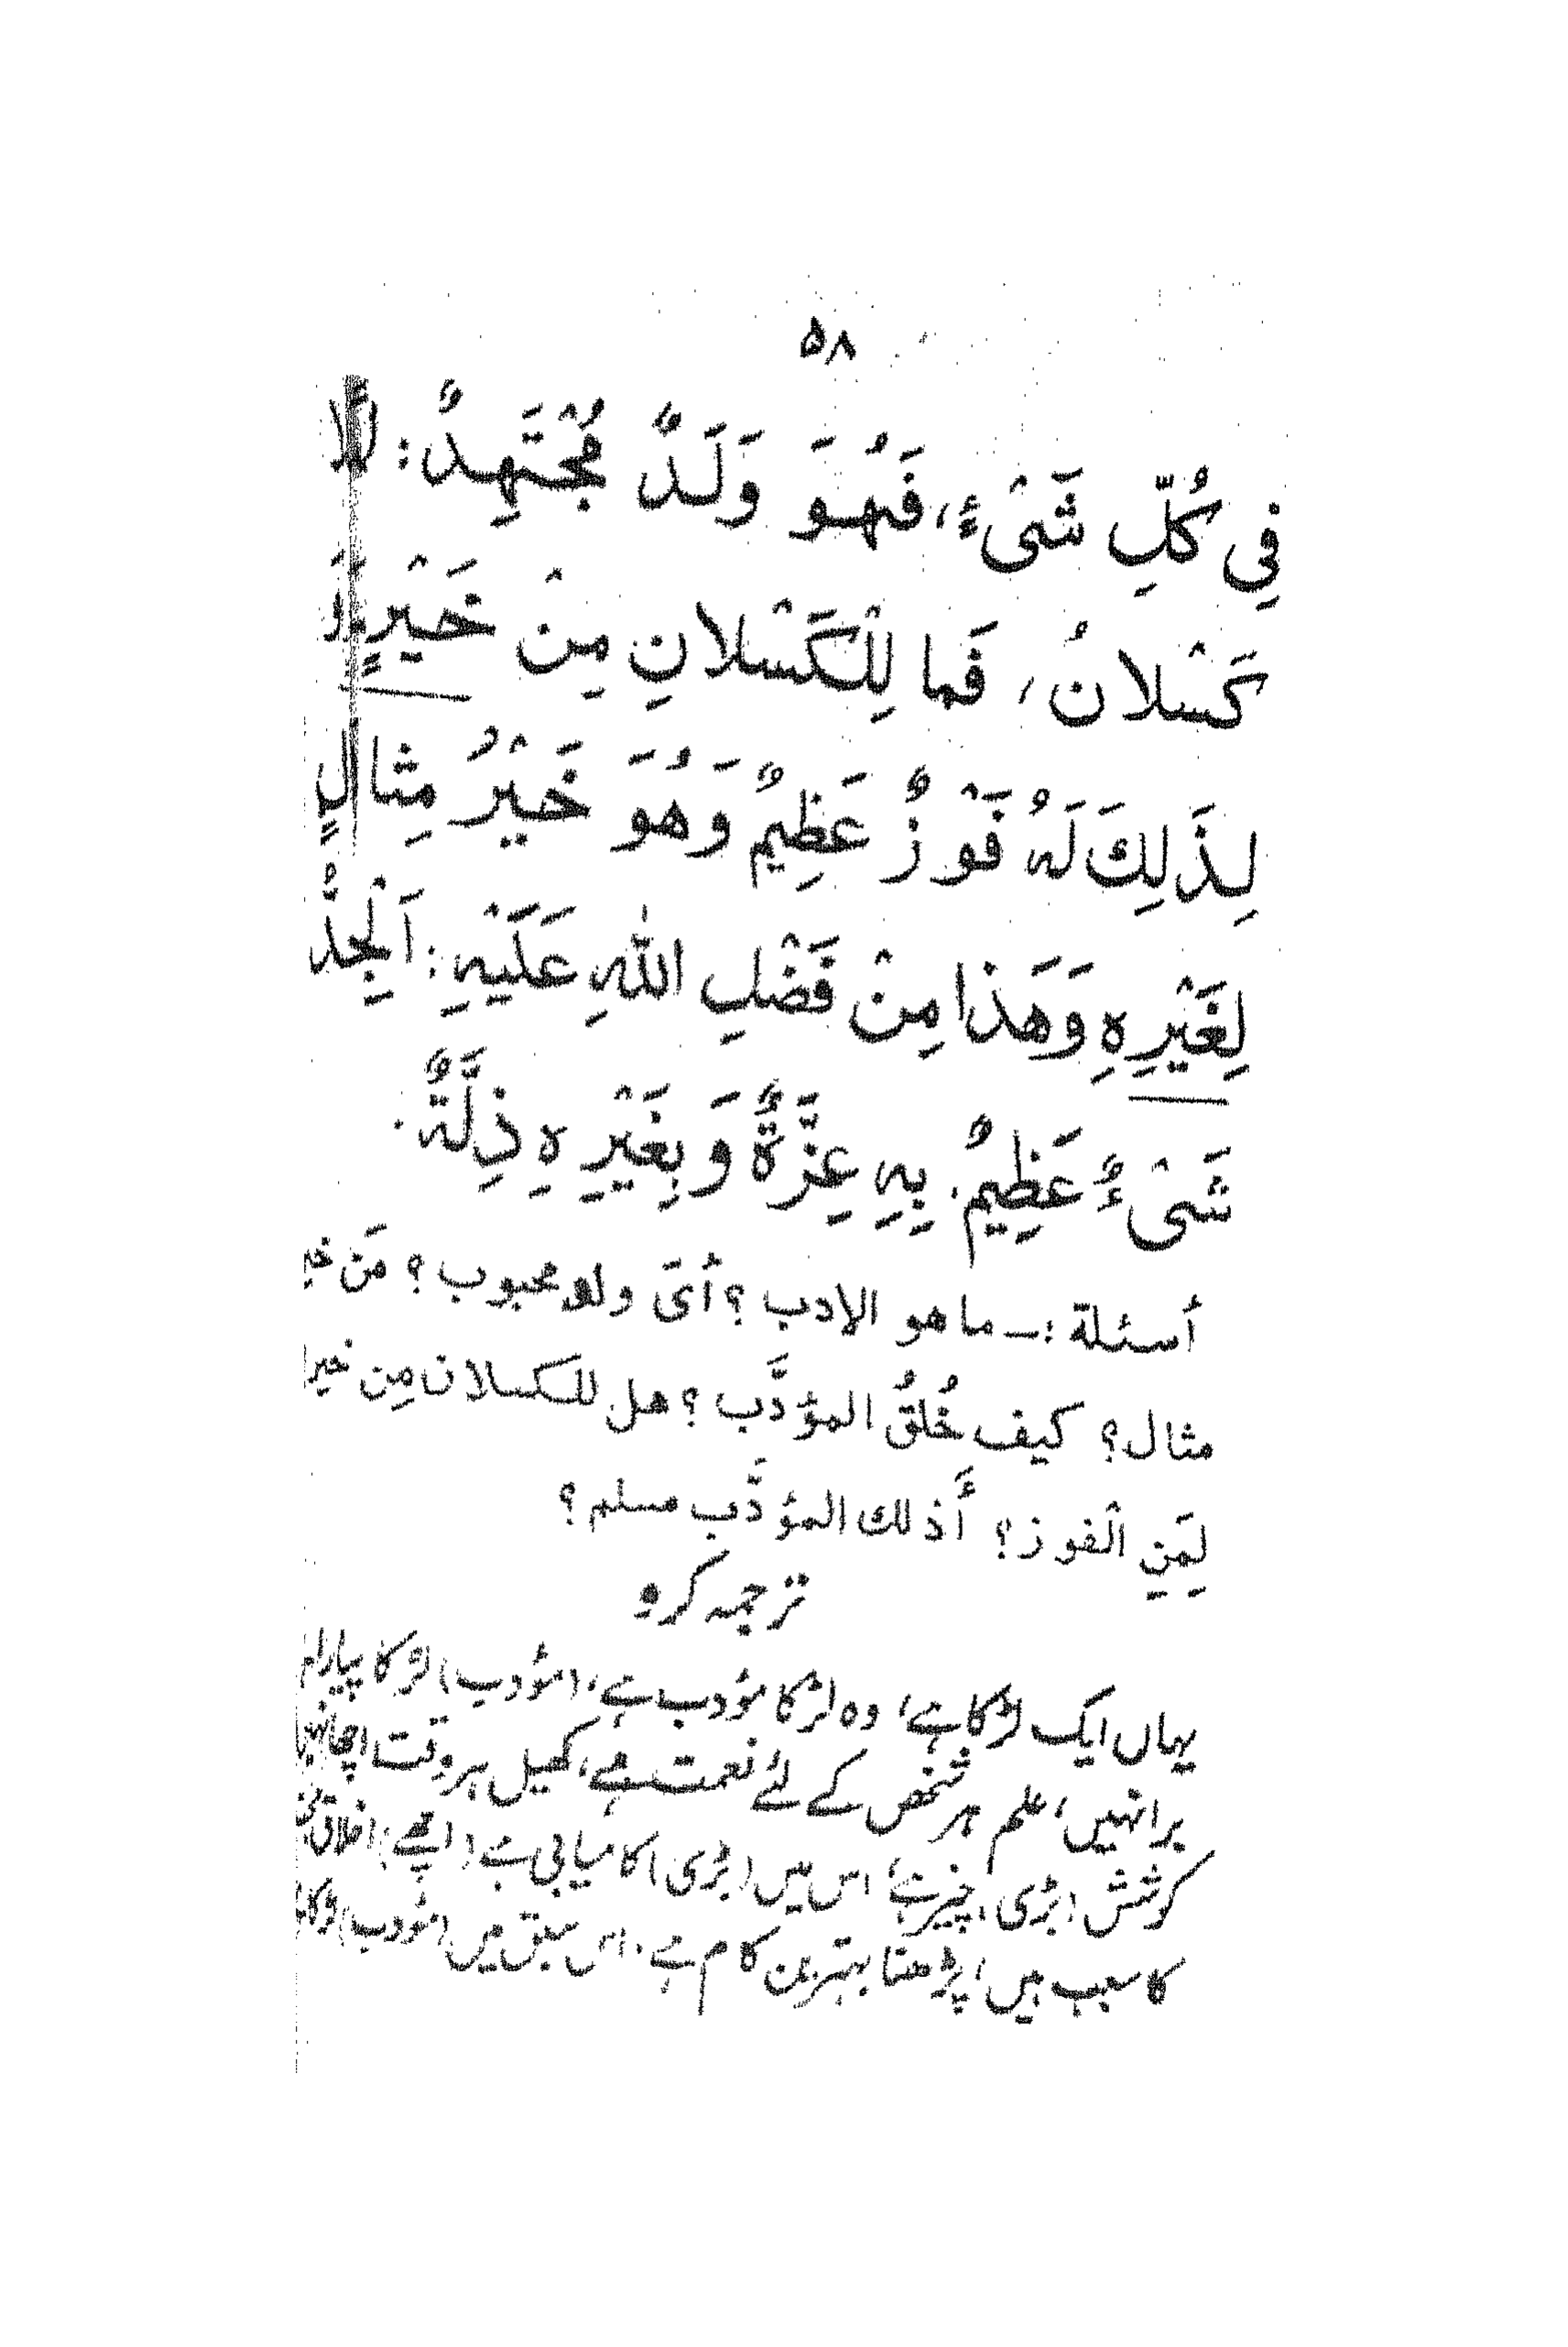 ۵۸
فِي كُلِّ شَيْءٍ، فَهُوَ وَلَدٌ مُجْتَهِدٌ: لَا
كَسْلَانُ، فَما لِلْكَسْلَانِ مِنْ خَيْرٍ
لِذَلِكَ لَهُ فَوْزٌ عَظِيمٌ وَهُوَ خَيْرُ مِثَالٍ
لِغَيْرِهِ وَهَذَا مِنْ فَضْلِ اللهِ عَلَيْهِ: اَلْجِدُّ
شَيْءٌ عَظِيمٌ. بِهِ عِزَّةٌ وَبِغَيْرِهِ ذِلَّةٌ.
أسئلة :— ما هو الادب ؟ أىّ ولد محبوب ؟ مَن
مثال؟ كيف خُلقُ المؤدَّب ؟ هل للكسلان مِن خير
لِمَنِ الْفوز؟ أَذلك المؤدَّب مسلم ؟
ترجمہ کرو
یہاں ایک لڑکا ہے، وہ لڑکا مؤدب ہے، (مؤدب) لڑکا پیارا
برا نہیں، علم ہر شخص کے لئے نعمت ہے، کھیل ہر وقت اچھا نہیں
کوشش (بڑی) چیز ہے، اس میں (بڑی) کامیابی ہے (اچھے) اخلاق
کا سبب ہیں، پڑھنا بہترین کام ہے، اس سبق میں (مؤدب)